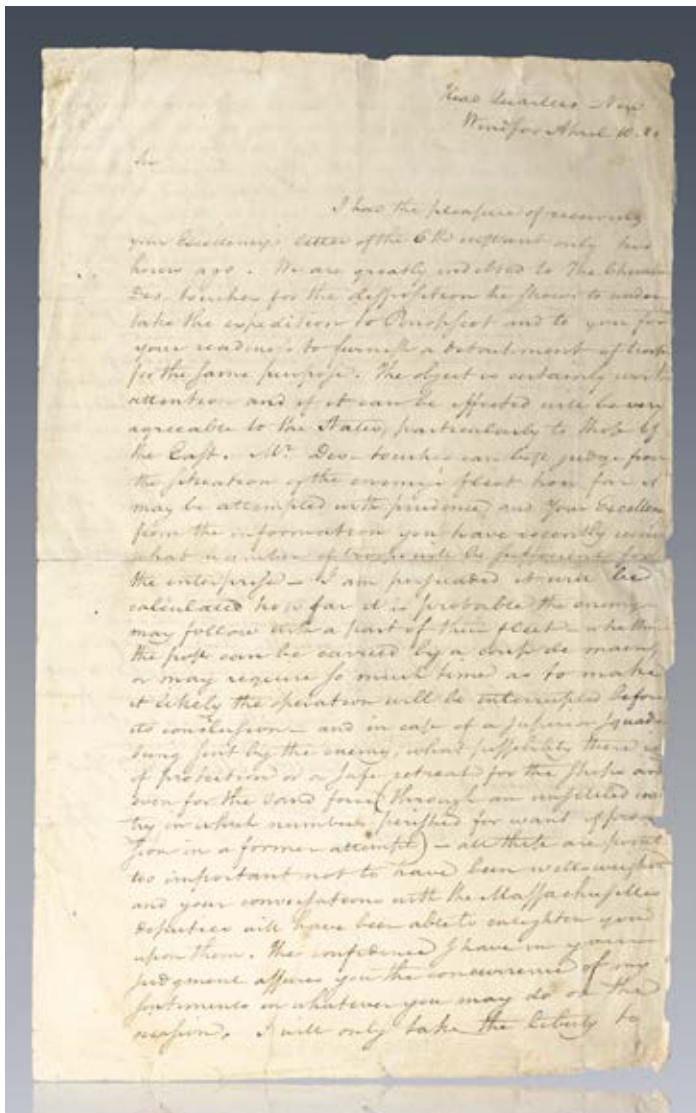 Head Quarters New
Windsor April 10. 81
Sir
I had the pleasure of receiving
your Excellency's letter of the 6th instant only two
hours ago. We are greatly indebted to The Cheva
Des touches for the disposition he shows to under
take the expedition to Penobscot and to you for
your readiness to furnish a detachment of troops
for the same purpose. The object is certainly worth
attention and if it can be effected will be very
agreeable to the States, particularly to those of
the East. Mr. Des-touches can best judge from
the situation of the enemy's fleet how far it
may be attempted with prudence, and Your Excellen
from the information you have recently
what number of troops will be sufficient for
the enterprise – I am persuaded it will be
calculated how far it is probable the enemy
may follow with a part of their fleet – whether
the post can be carried by a coup de main,
or may require so much time as to make
it likely the operation will be interrupted before
its conclusion – and in case of a superior squad
being sent by the enemy, what possibility there is
of protection or a safe retreat for the ships and
even for the land force (through an unsettled coun
try in which numbers perished for want of provi
sion in a former attempt) – all these are points
too important not to have been well weighed
and your conversations with the Massachusettes
deputies will have been able to enlighten you
upon them. The confidence I have in your
judgment assures you the concurrence of my
sentiments in whatever you may do on the
occasion. I will only take the liberty to